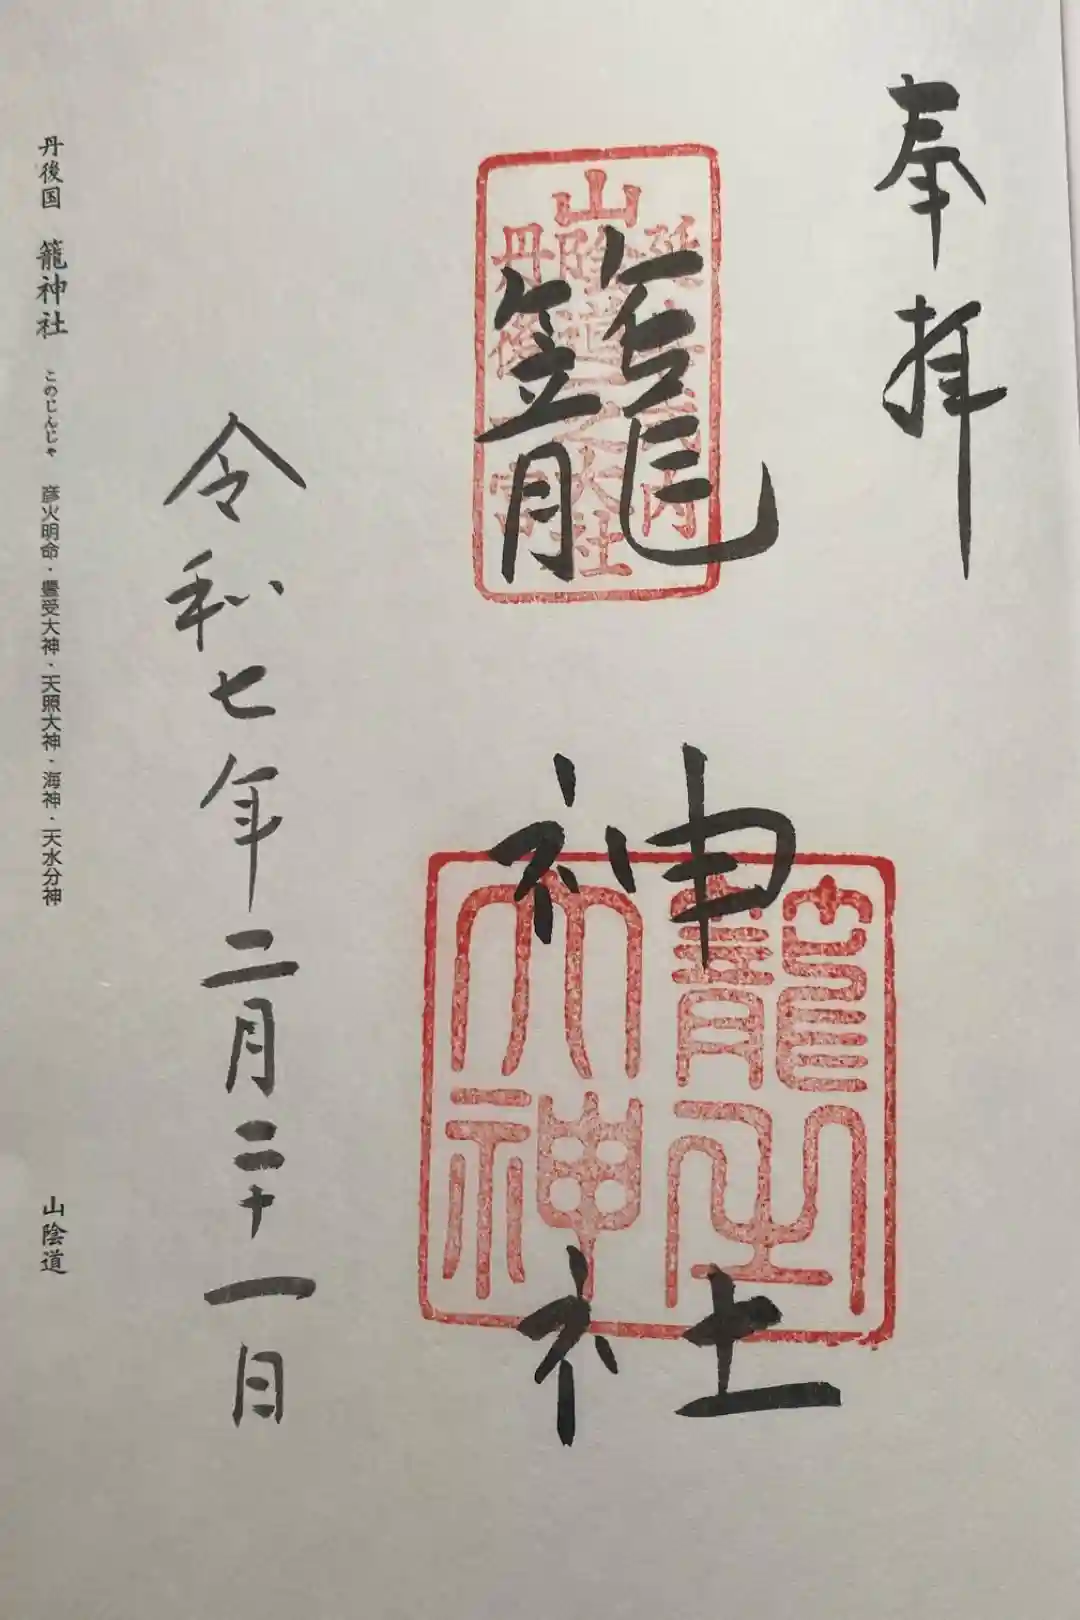 奉拝
籠神社
山陰道
丹後
大社
籠之大神
令和七年二月二十一日
丹後国 籠神社 このじんじゃ 彦火明命・豊受大神・天照大神・海神・天水分神 山陰道